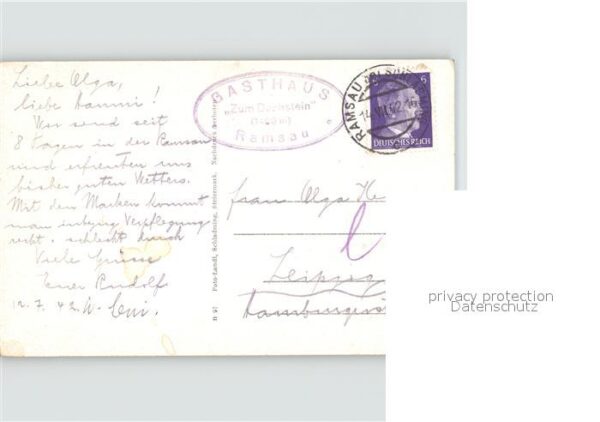 Liebe Olga,
liebe Hanni!
Wir sind seit
8 Tagen in der Ramsau
und erfreuten uns
bisher guten Wetters.
Mit den Marken kommt
man Verpflegung
schlecht durch
Viele Grüsse
Euer Rudolf
12.7.42.
GASTHAUS
„Zum Dachstein"
Ramsau
RAMSAU
6
DEUTSCHES REICH
Frau Olga He
Leipzig
Hamburger
Foto-Landl, Schladming, Steiermark. Nachdruck verboten
privacy protection
Datenschutz